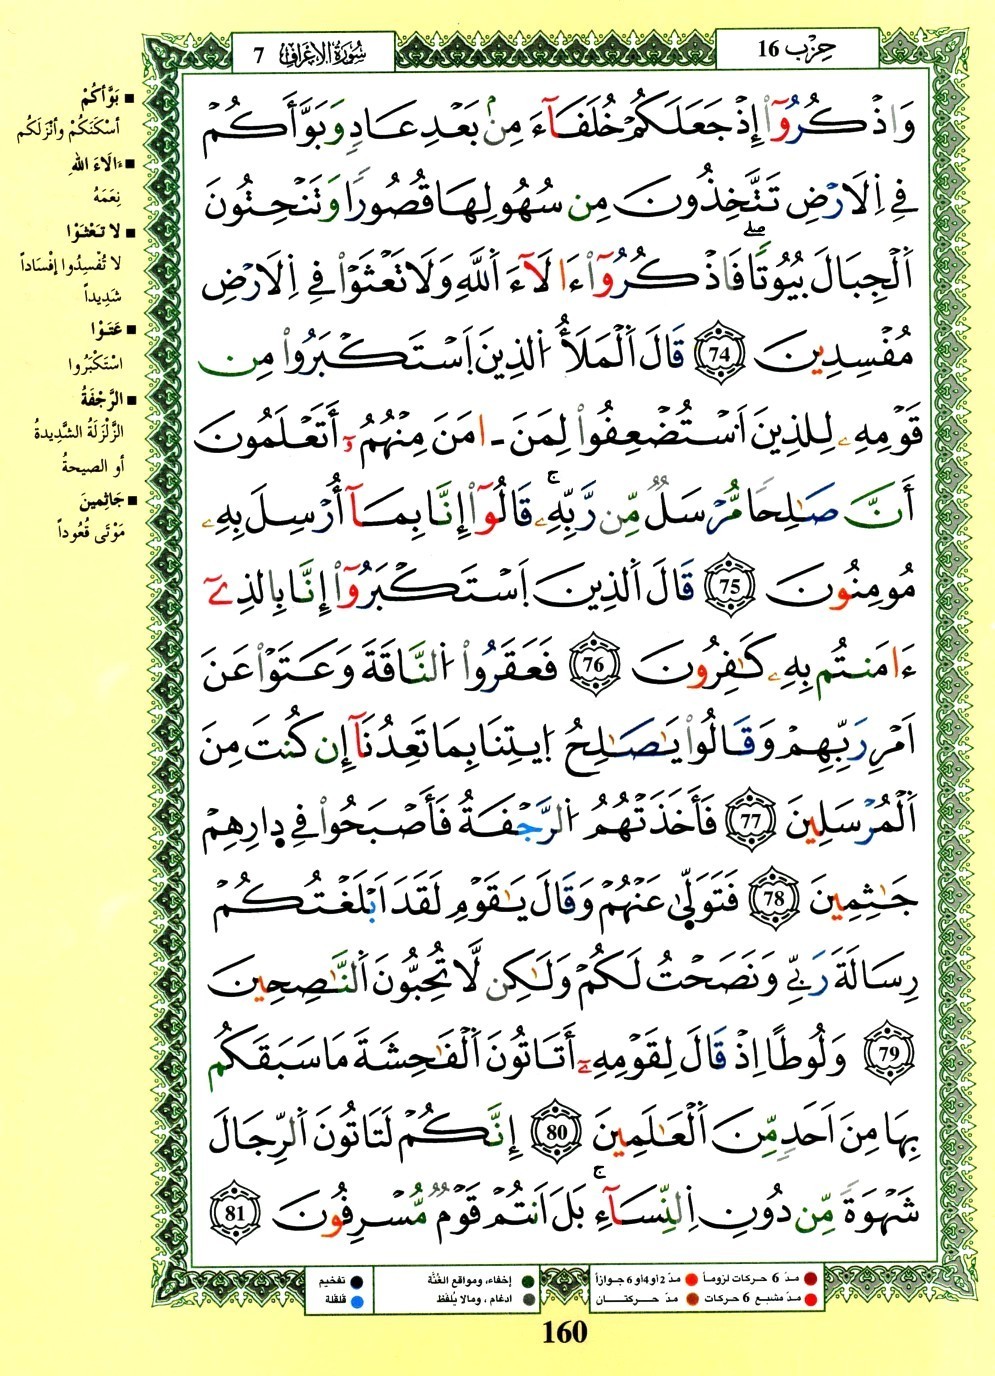 سُورَةُ الاِعْرَافِ 7
حِزْب 16
وَاذْكُرُوٓاْ إِذْ جَعَلَكُمْ خُلَفَآءَ مِنۢ بَعْدِ عَادٍ وَبَوَّأَكُمْ
فِے اِلَارْضِ تَتَّخِذُونَ مِن سُهُولِهَا قُصُورًا وَتَنْحِتُونَ
اَلْجِبَالَ بُيُوتًا ۖ فَاذْكُرُوٓاْ ءَالَآءَ اَللَّهِ وَلَا تَعْثَوْاْ فِے اِلَارْضِ
مُفْسِدِينَ 74 قَالَ اَلْمَلَأُ اَلذِينَ اَسْتَكْبَرُواْ مِن
قَوْمِهِۦ لِلذِينَ اَسْتُضْعِفُواْ لِمَنَ ـ امَنَ مِنْهُمُۥٓ أَتَعْلَمُونَ
أَنَّ صَٰلِحًا مُّرْسَلٌ مِّن رَّبِّهِۦ ۚ قَالُوٓاْ إِنَّا بِمَآ أُرْسِلَ بِهِۦ
مُومِنُونَ 75 قَالَ اَلذِينَ اَسْتَكْبَرُوٓاْ إِنَّا بِالذِےٓ
ءَامَنتُم بِهِۦ كَٰفِرُونَ 76 فَعَقَرُواْ اُلنَّاقَةَ وَعَتَوْاْ عَنَ
اَمْرِ رَبِّهِمْ وَقَالُواْ يَٰصَٰلِحُ اُ۪يتِنَا بِمَا تَعِدُنَآ إِن كُنتَ مِنَ
اَلْمُرْسَلِينَ 77 فَأَخَذَتْهُمُ اُلرَّجْفَةُ فَأَصْبَحُواْ فِے دِارِهِمْ
جَٰثِمِينَ 78 فَتَوَلَّىٰ عَنْهُمْ وَقَالَ يَٰقَوْمِ لَقَدَ اَبْلَغْتُكُمْ
رِسَالَةَ رَبِّے وَنَصَحْتُ لَكُمْ وَلَٰكِن لَّا تُحِبُّونَ اَلنَّٰصِحِينَ
79 وَلُوطًا اِذْ قَالَ لِقَوْمِهِۦٓ أَتَاتُونَ اَلْفَٰحِشَةَ مَا سَبَقَكُم
بِهَا مِنَ اَحَدٍ مِّنَ اَلْعَٰلَمِينَ 80 إِنَّكُمْ لَتَاتُونَ اَلرِّجَالَ
شَهْوَةً مِّن دُونِ اِلنِّسَآءِ ۚ بَلَ اَنتُمْ قَوْمٌ مُّسْرِفُونَ 81
■ بَوَّأكُمْ
أسْكَنَكُمْ وأنْزَلَكُم
■ ءَالَاءَ اللهِ
نِعَمَهُ
■ لا تَعْثَوْا
لا تُفْسِدُوا إفْسَاداً
شَدِيداً
■ عَتَوْا
اسْتَكْبَرُوا
■ الرَّجْفَةُ
الزَّلْزَلَةُ الشَّدِيدةُ
أو الصيحةُ
■ جَاثِمِينَ
مَوْتَى قُعُوداً
● مدّ 6 حركات لزوماً ● مدّ 2 أو 4 أو 6 جوازاً
● مدّ مشبع 6 حركات ● مدّ حركتــان
● إخفاء، ومواقع الغُنَّة
● ادغام ، ومالا يُلفظ
● تفخيم
● قلقلة
160